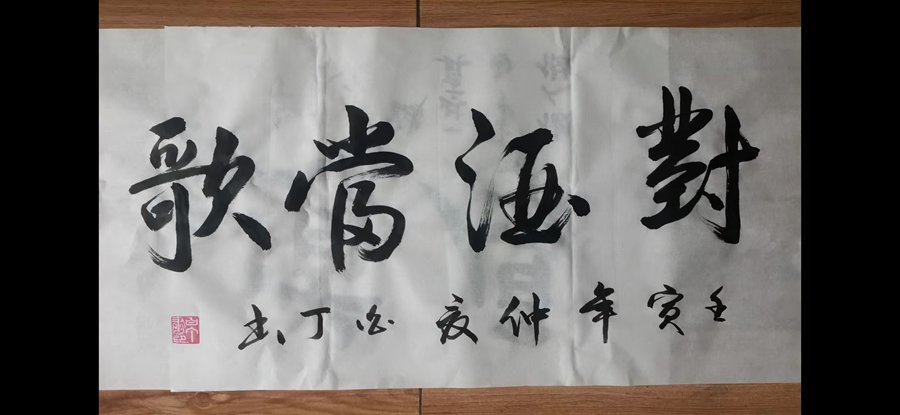 對酒當歌
壬寅年仲夏 丁書